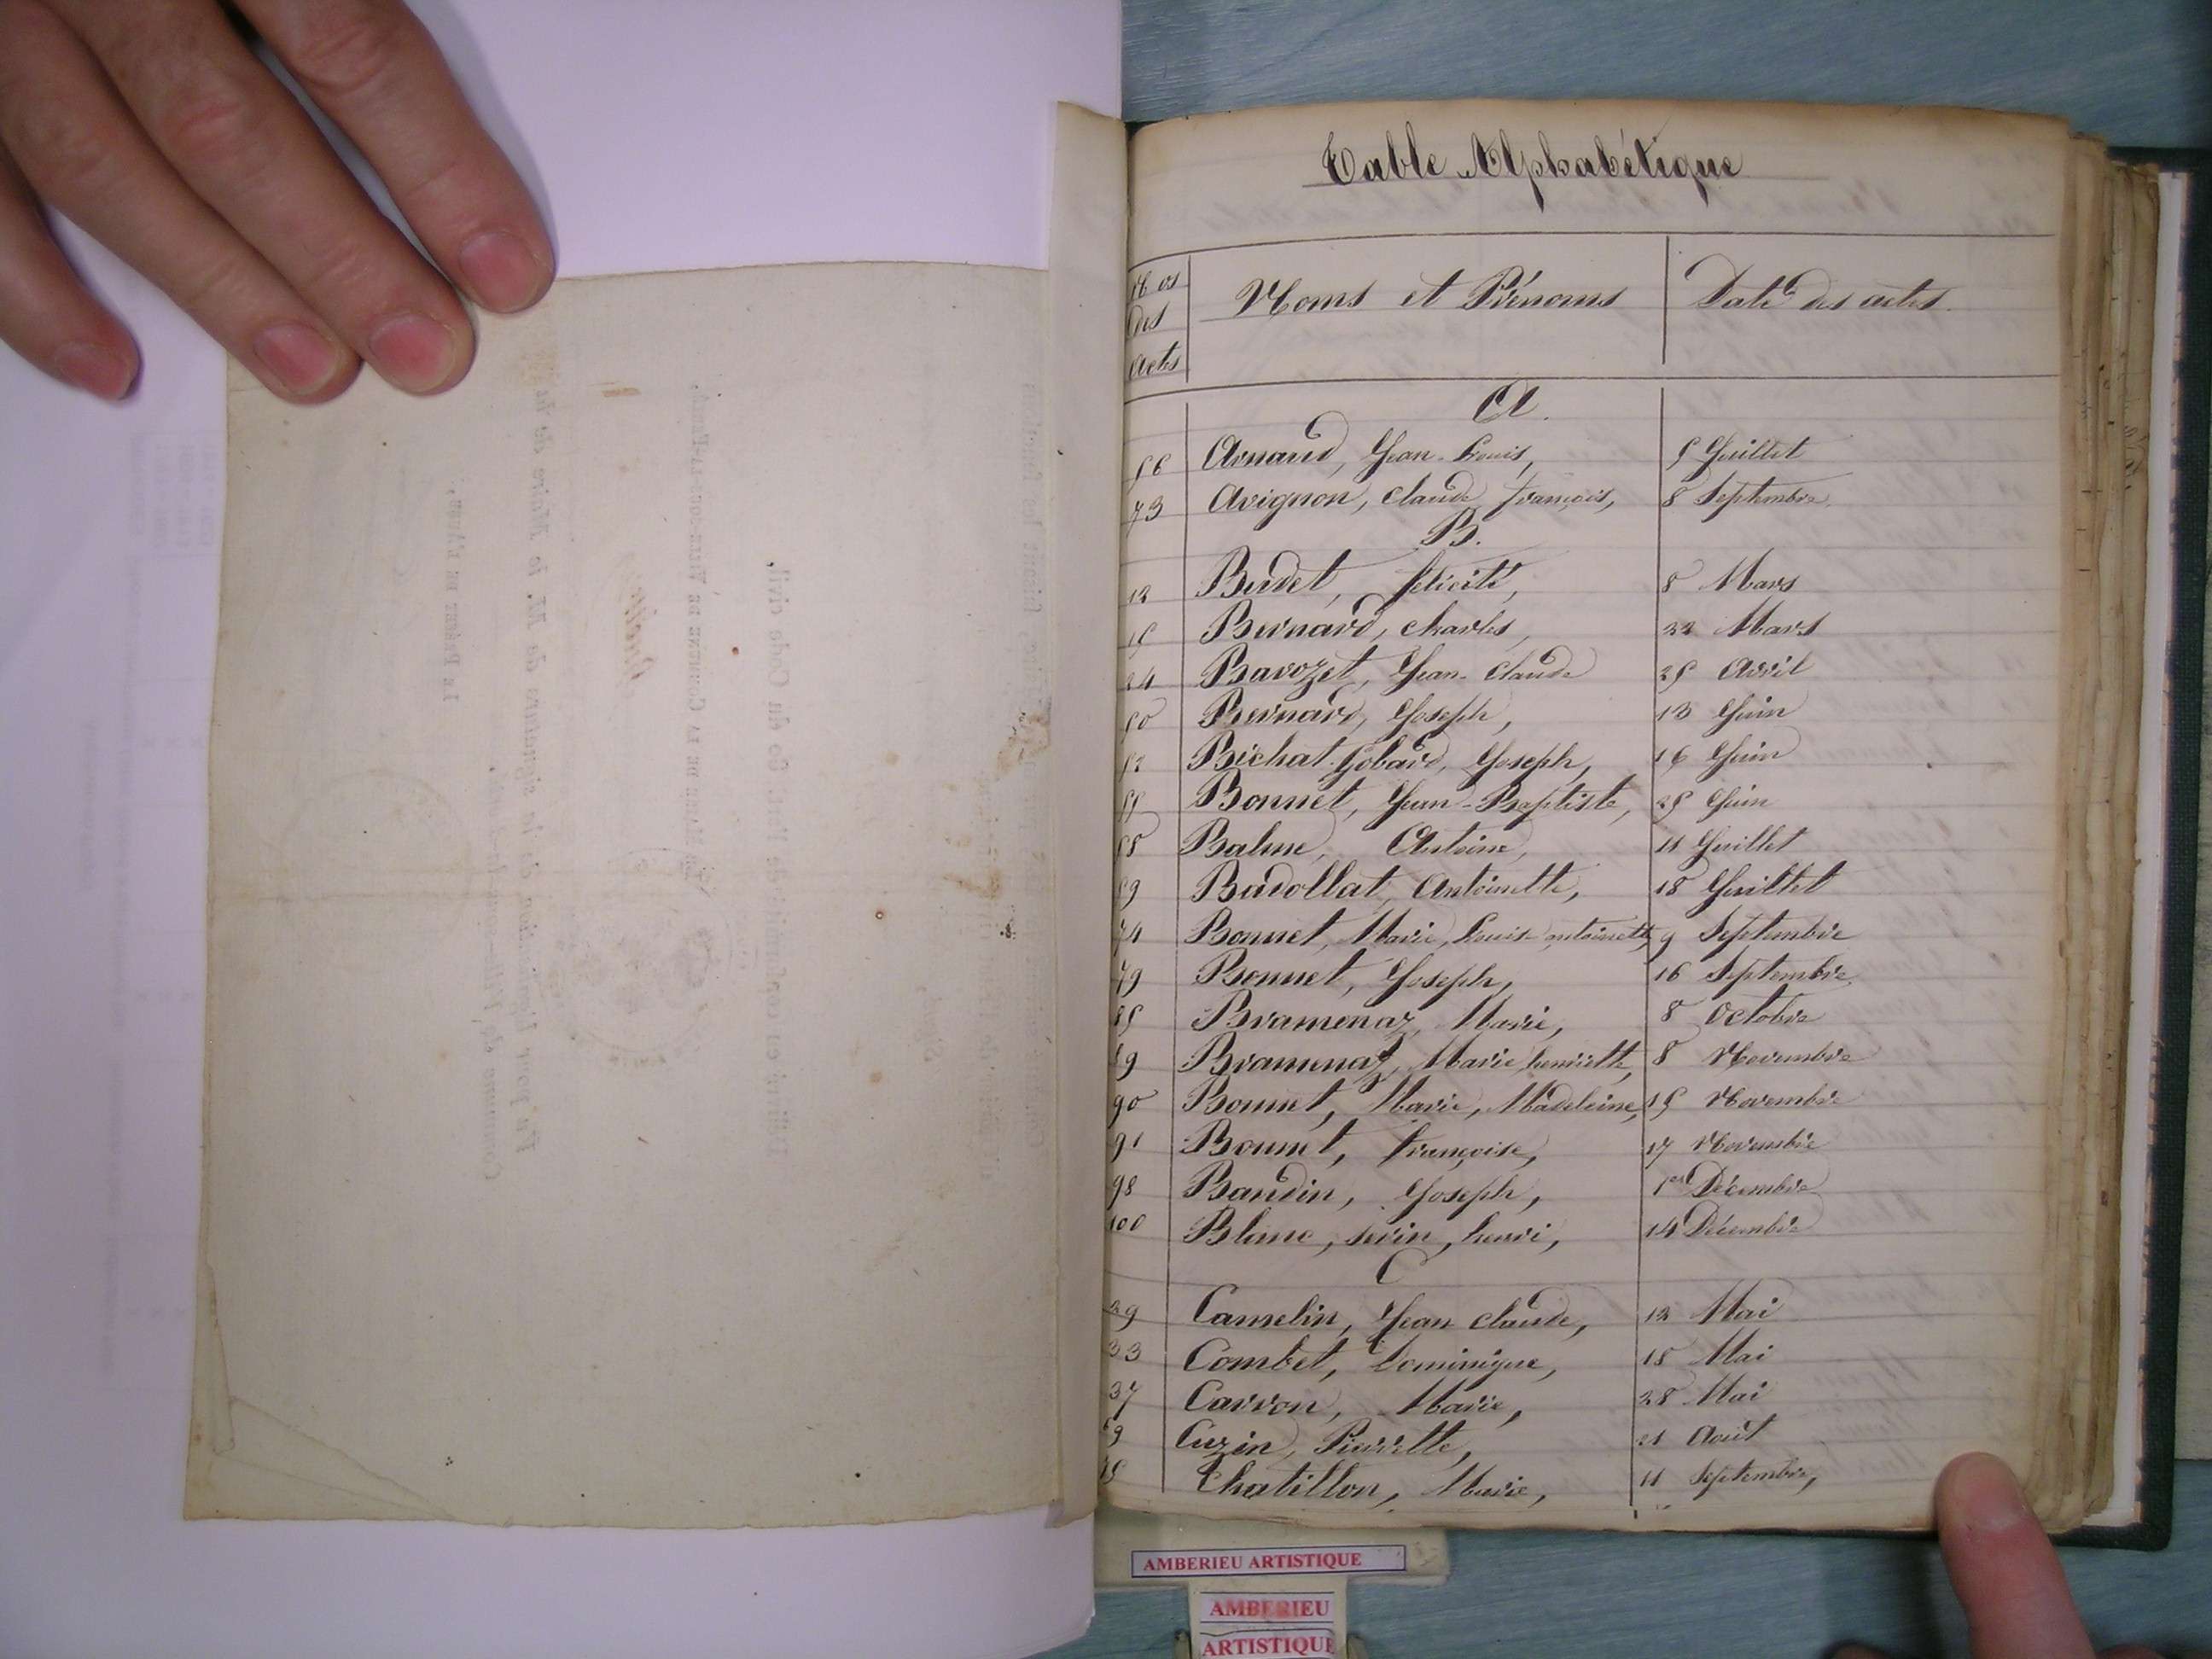 Table Alphabétique
Nos des actes
Noms et Prénoms
Date des actes.
A.
56 Arnaud, Jean-Louis, 5 Juillet
73 Avignon, Claude françois, 8 Septembre
B.
12 Budet, félicité, 8 Mars
15 Bernard, Charles, 22 Mars
24 Bavozet, Jean-Claude 25 Avril
50 Bernard, Joseph, 13 Juin
52 Bichat-Gobard, Joseph, 16 Juin
55 Bonnet, Jean-Baptiste, 25 Juin
58 Balme, Antoine, 11 Juillet
59 Badollat, Antoinette, 18 Juillet
74 Bonnet, Marie, Louise antoinette, 9 Septembre
79 Bonnet, Joseph, 16 Septembre
85 Bramenaz, Marie, 8 Octobre
89 Bramenaz, Marie henriette, 8 Novembre
90 Bonnet, Marie, Madeleine, 15 Novembre
91 Bonnet, françoise, 17 Novembre
98 Baudin, Joseph, 1er Décembre
100 Blanc, henri, 14 Décembre
C
29 Camelin, Jean Claude, 12 Mai
33 Combet, Dominique, 18 Mai
37 Carron, Marie, 28 Mai
69 Cuzin, Pierrette, 21 Août
75 Chatillon, Marie, 11 Septembre,
AMBERIEU ARTISTIQUE
AMBERIEU
ARTISTIQUE